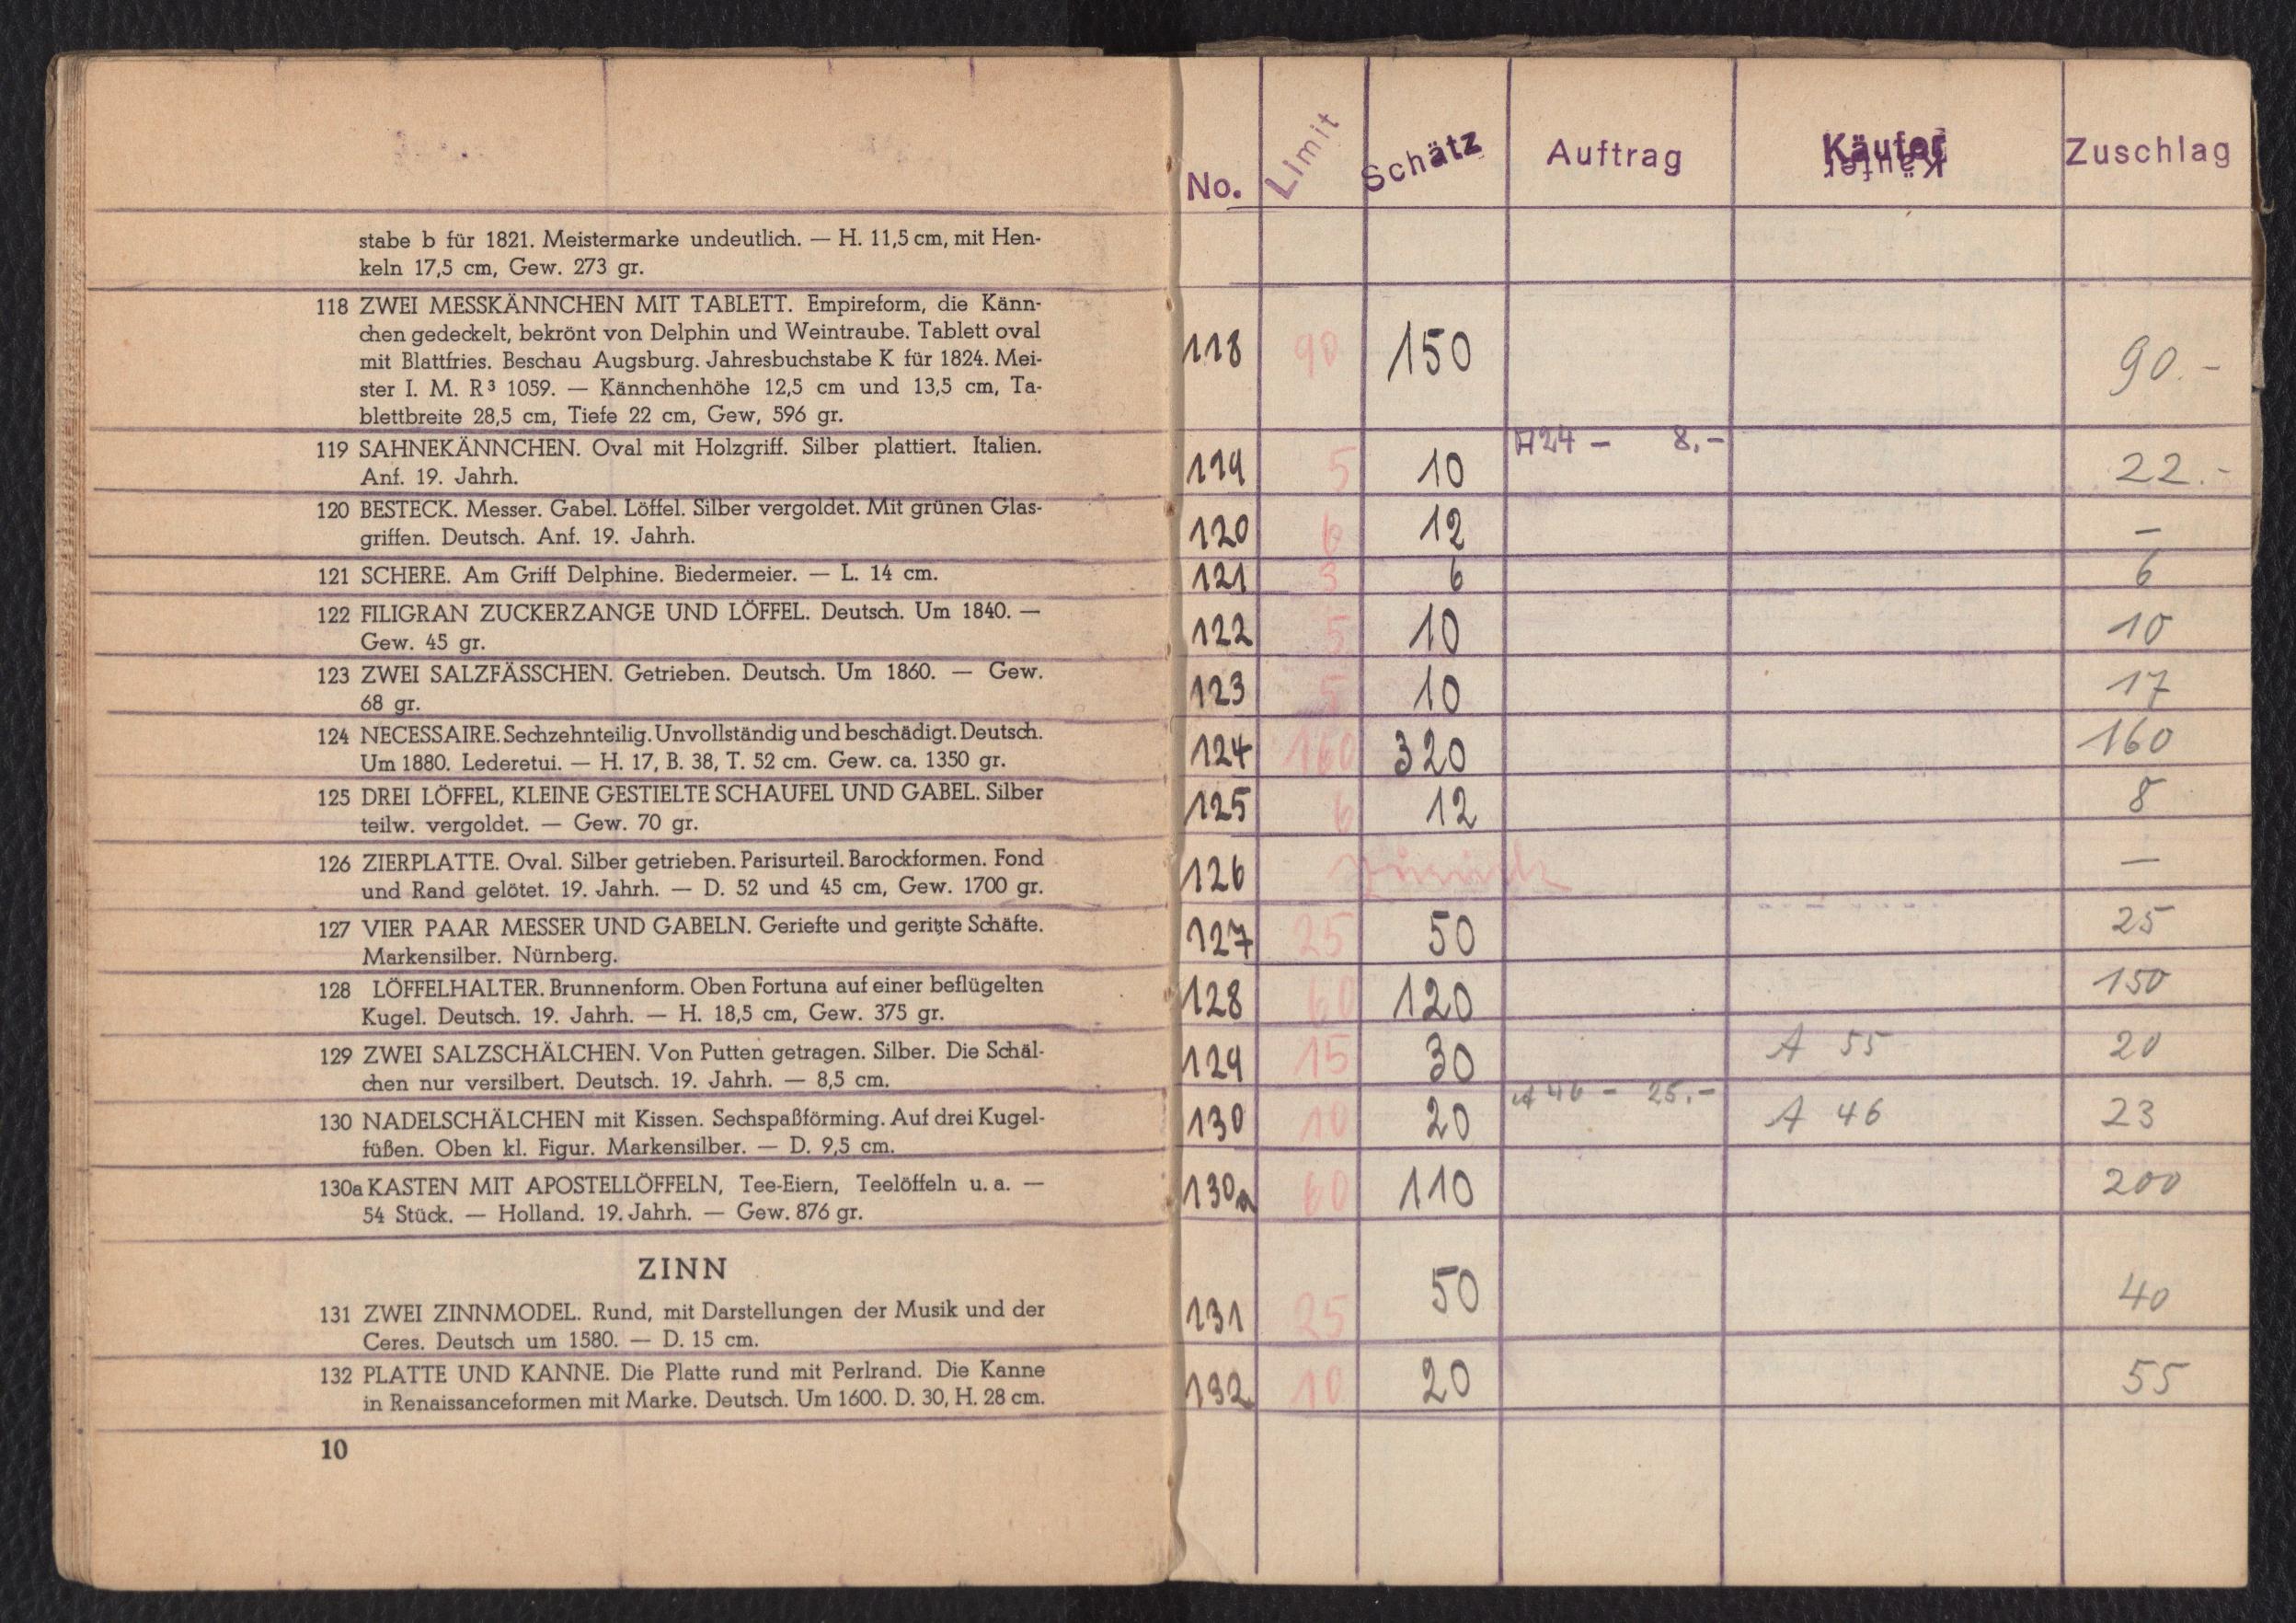 stabe b für 1821. Meistermarke undeutlich. — H. 11,5 cm, mit Hen-
keln 17,5 cm, Gew. 273 gr.
118 ZWEI MESSKÄNNCHEN MIT TABLETT. Empireform, die Känn-
chen gedeckelt, bekrönt von Delphin und Weintraube. Tablett oval
mit Blattfries. Beschau Augsburg. Jahresbuchstabe K für 1824. Mei-
ster I. M. R³ 1059. — Kännchenhöhe 12,5 cm und 13,5 cm, Ta-
blettbreite 28,5 cm, Tiefe 22 cm, Gew, 596 gr.
119 SAHNEKÄNNCHEN. Oval mit Holzgriff. Silber plattiert. Italien.
Anf. 19. Jahrh.
120 BESTECK. Messer. Gabel. Löffel. Silber vergoldet. Mit grünen Glas-
griffen. Deutsch. Anf. 19. Jahrh.
121 SCHERE. Am Griff Delphine. Biedermeier. — L. 14 cm.
122 FILIGRAN ZUCKERZANGE UND LÖFFEL. Deutsch. Um 1840. —
Gew. 45 gr.
123 ZWEI SALZFÄSSCHEN. Getrieben. Deutsch. Um 1860. — Gew.
68 gr.
124 NECESSAIRE. Sechzehnteilig. Unvollständig und beschädigt. Deutsch.
Um 1880. Lederetui. — H. 17, B. 38, T. 52 cm. Gew. ca. 1350 gr.
125 DREI LÖFFEL, KLEINE GESTIELTE SCHAUFEL UND GABEL. Silber
teilw. vergoldet. — Gew. 70 gr.
126 ZIERPLATTE. Oval. Silber getrieben. Parisurteil. Barockformen. Fond
und Rand gelötet. 19. Jahrh. — D. 52 und 45 cm, Gew. 1700 gr.
127 VIER PAAR MESSER UND GABELN. Geriefte und geritzte Schäfte.
Markensilber. Nürnberg.
128 LÖFFELHALTER. Brunnenform. Oben Fortuna auf einer beflügelten
Kugel. Deutsch. 19. Jahrh. — H. 18,5 cm, Gew. 375 gr.
129 ZWEI SALZSCHÄLCHEN. Von Putten getragen. Silber. Die Schäl-
chen nur versilbert. Deutsch. 19. Jahrh. — 8,5 cm.
130 NADELSCHÄLCHEN mit Kissen. Sechspaßförming. Auf drei Kugel-
füßen. Oben kl. Figur. Markensilber. — D. 9,5 cm.
130a KASTEN MIT APOSTELLÖFFELN, Tee-Eiern, Teelöffeln u. a. —
54 Stück. — Holland. 19. Jahrh. — Gew. 876 gr.
ZINN
131 ZWEI ZINNMODEL. Rund, mit Darstellungen der Musik und der
Ceres. Deutsch um 1580. — D. 15 cm.
132 PLATTE UND KANNE. Die Platte rund mit Perlrand. Die Kanne
in Renaissanceformen mit Marke. Deutsch. Um 1600. D. 30, H. 28 cm.
10
No. Limit Schätz Auftrag Käufer Zuschlag
118 90 150 90.-
119 5 10 A24 - 8.- 22.-
120 6 12 —
121 3 6 6
122 5 10 10
123 5 10 17
124 160 320 160
125 6 12 8
126 zurück —
127 25 50 25
128 60 120 150
129 15 30 A 55 20
130 10 20 A 46 - 25.- A 46 23
130a 60 110 200
131 25 50 40
132 10 20 55